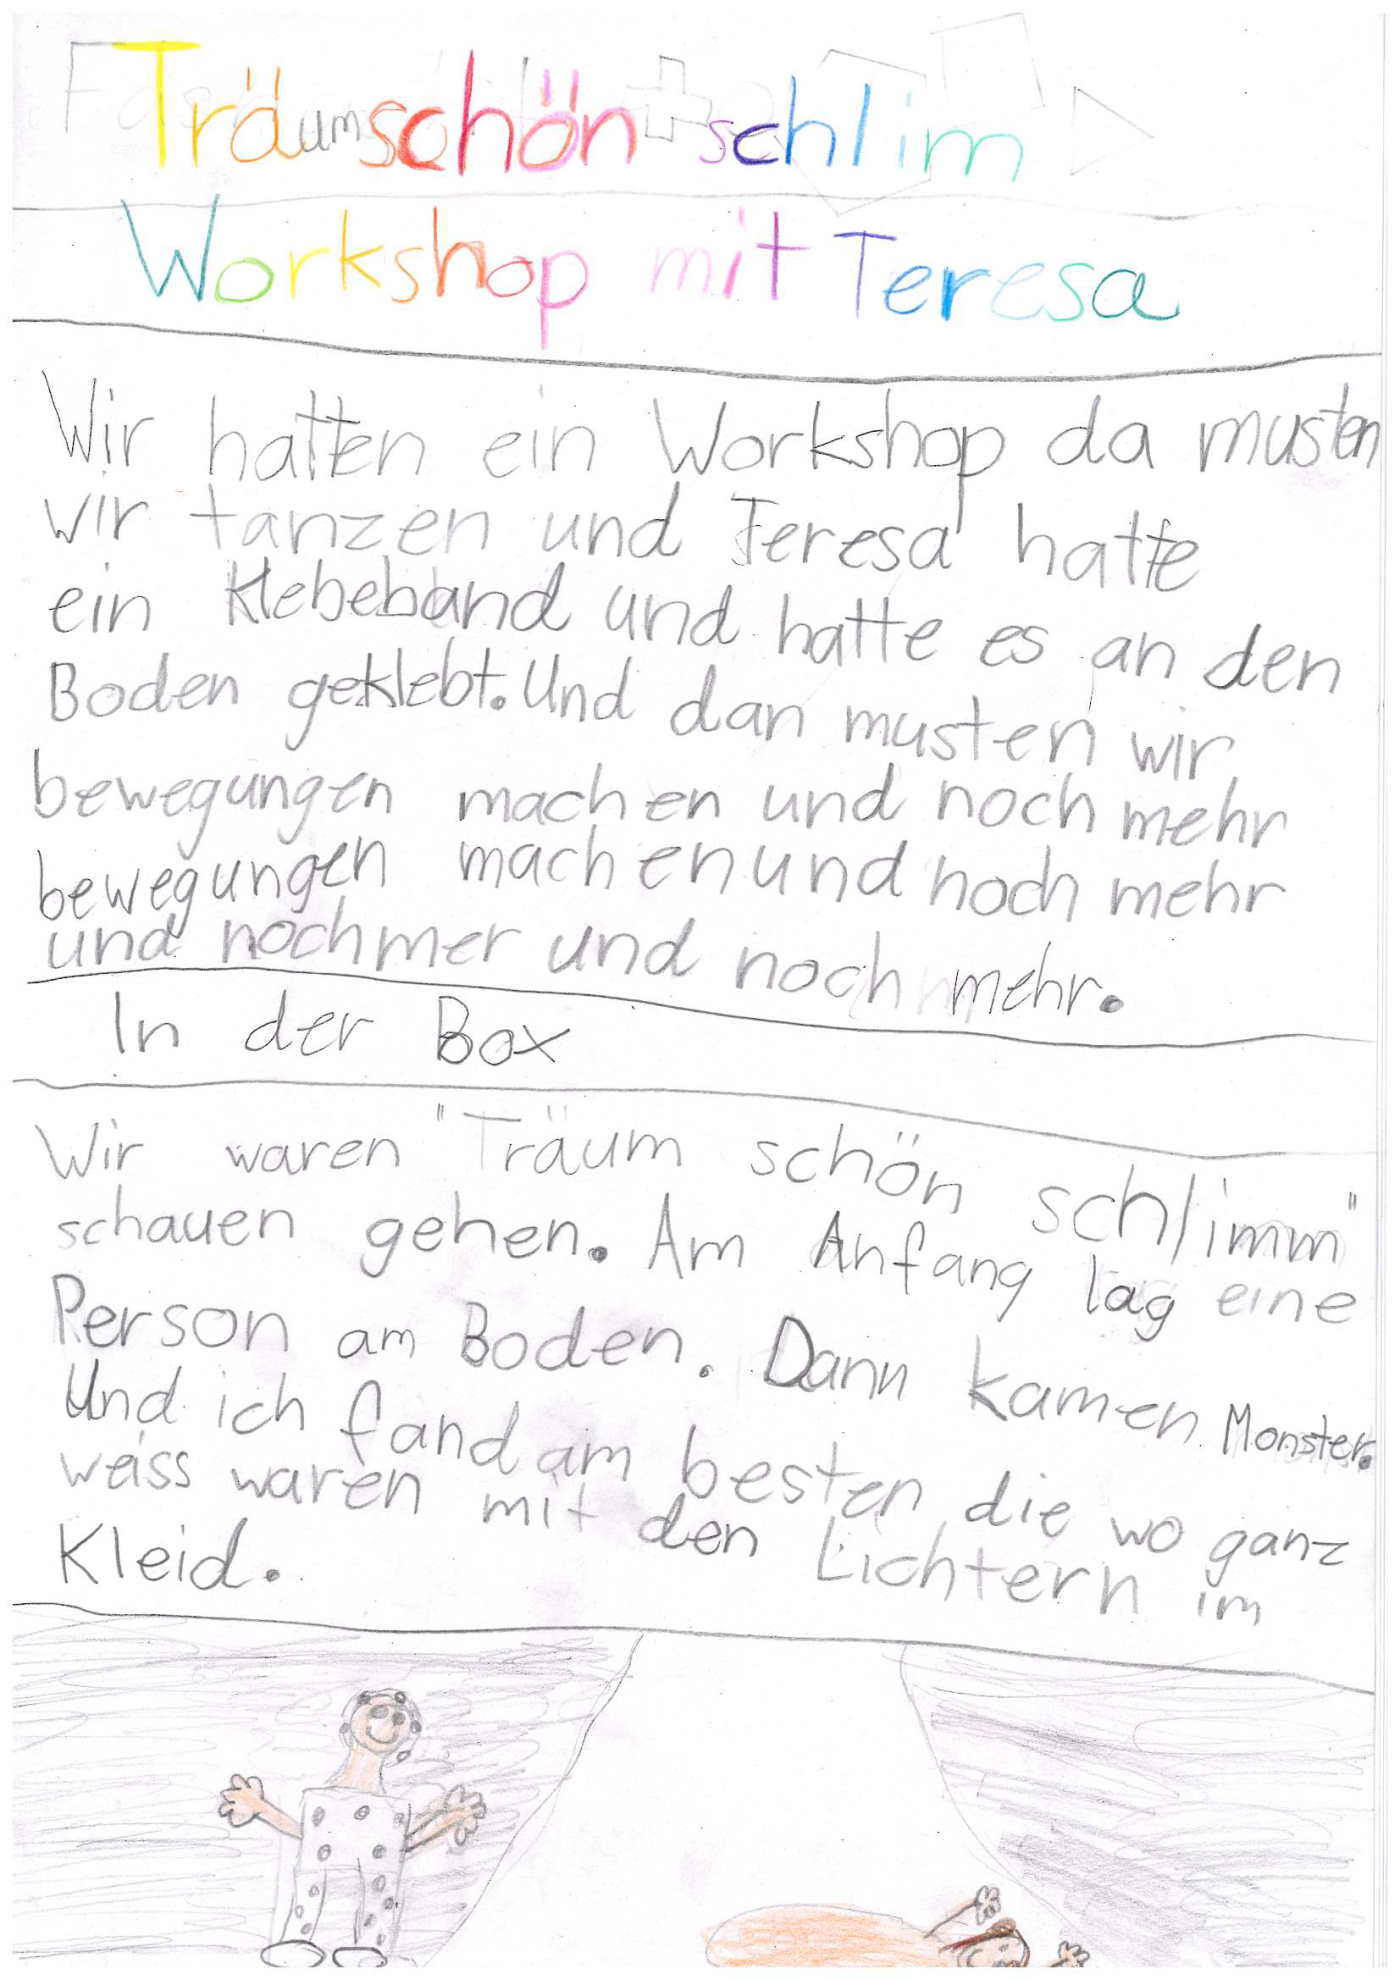 Träumschön schlim
Workshop mit Teresa
Wir hatten ein Workshop da musten
wir tanzen und Teresa hatte
ein Klebeband und hatte es an den
Boden geklebt. Und dan musten wir
bewegungen machen und noch mehr
bewegungen machen und noch mehr
und noch mer und noch mehr.
In der Box
Wir waren "Träum schön schlimm"
schauen gehen. Am Anfang lag eine
Person am Boden. Dann kamen Monster.
Und ich fand am besten die wo ganz
weiss waren mit den Lichtern im
Kleid.